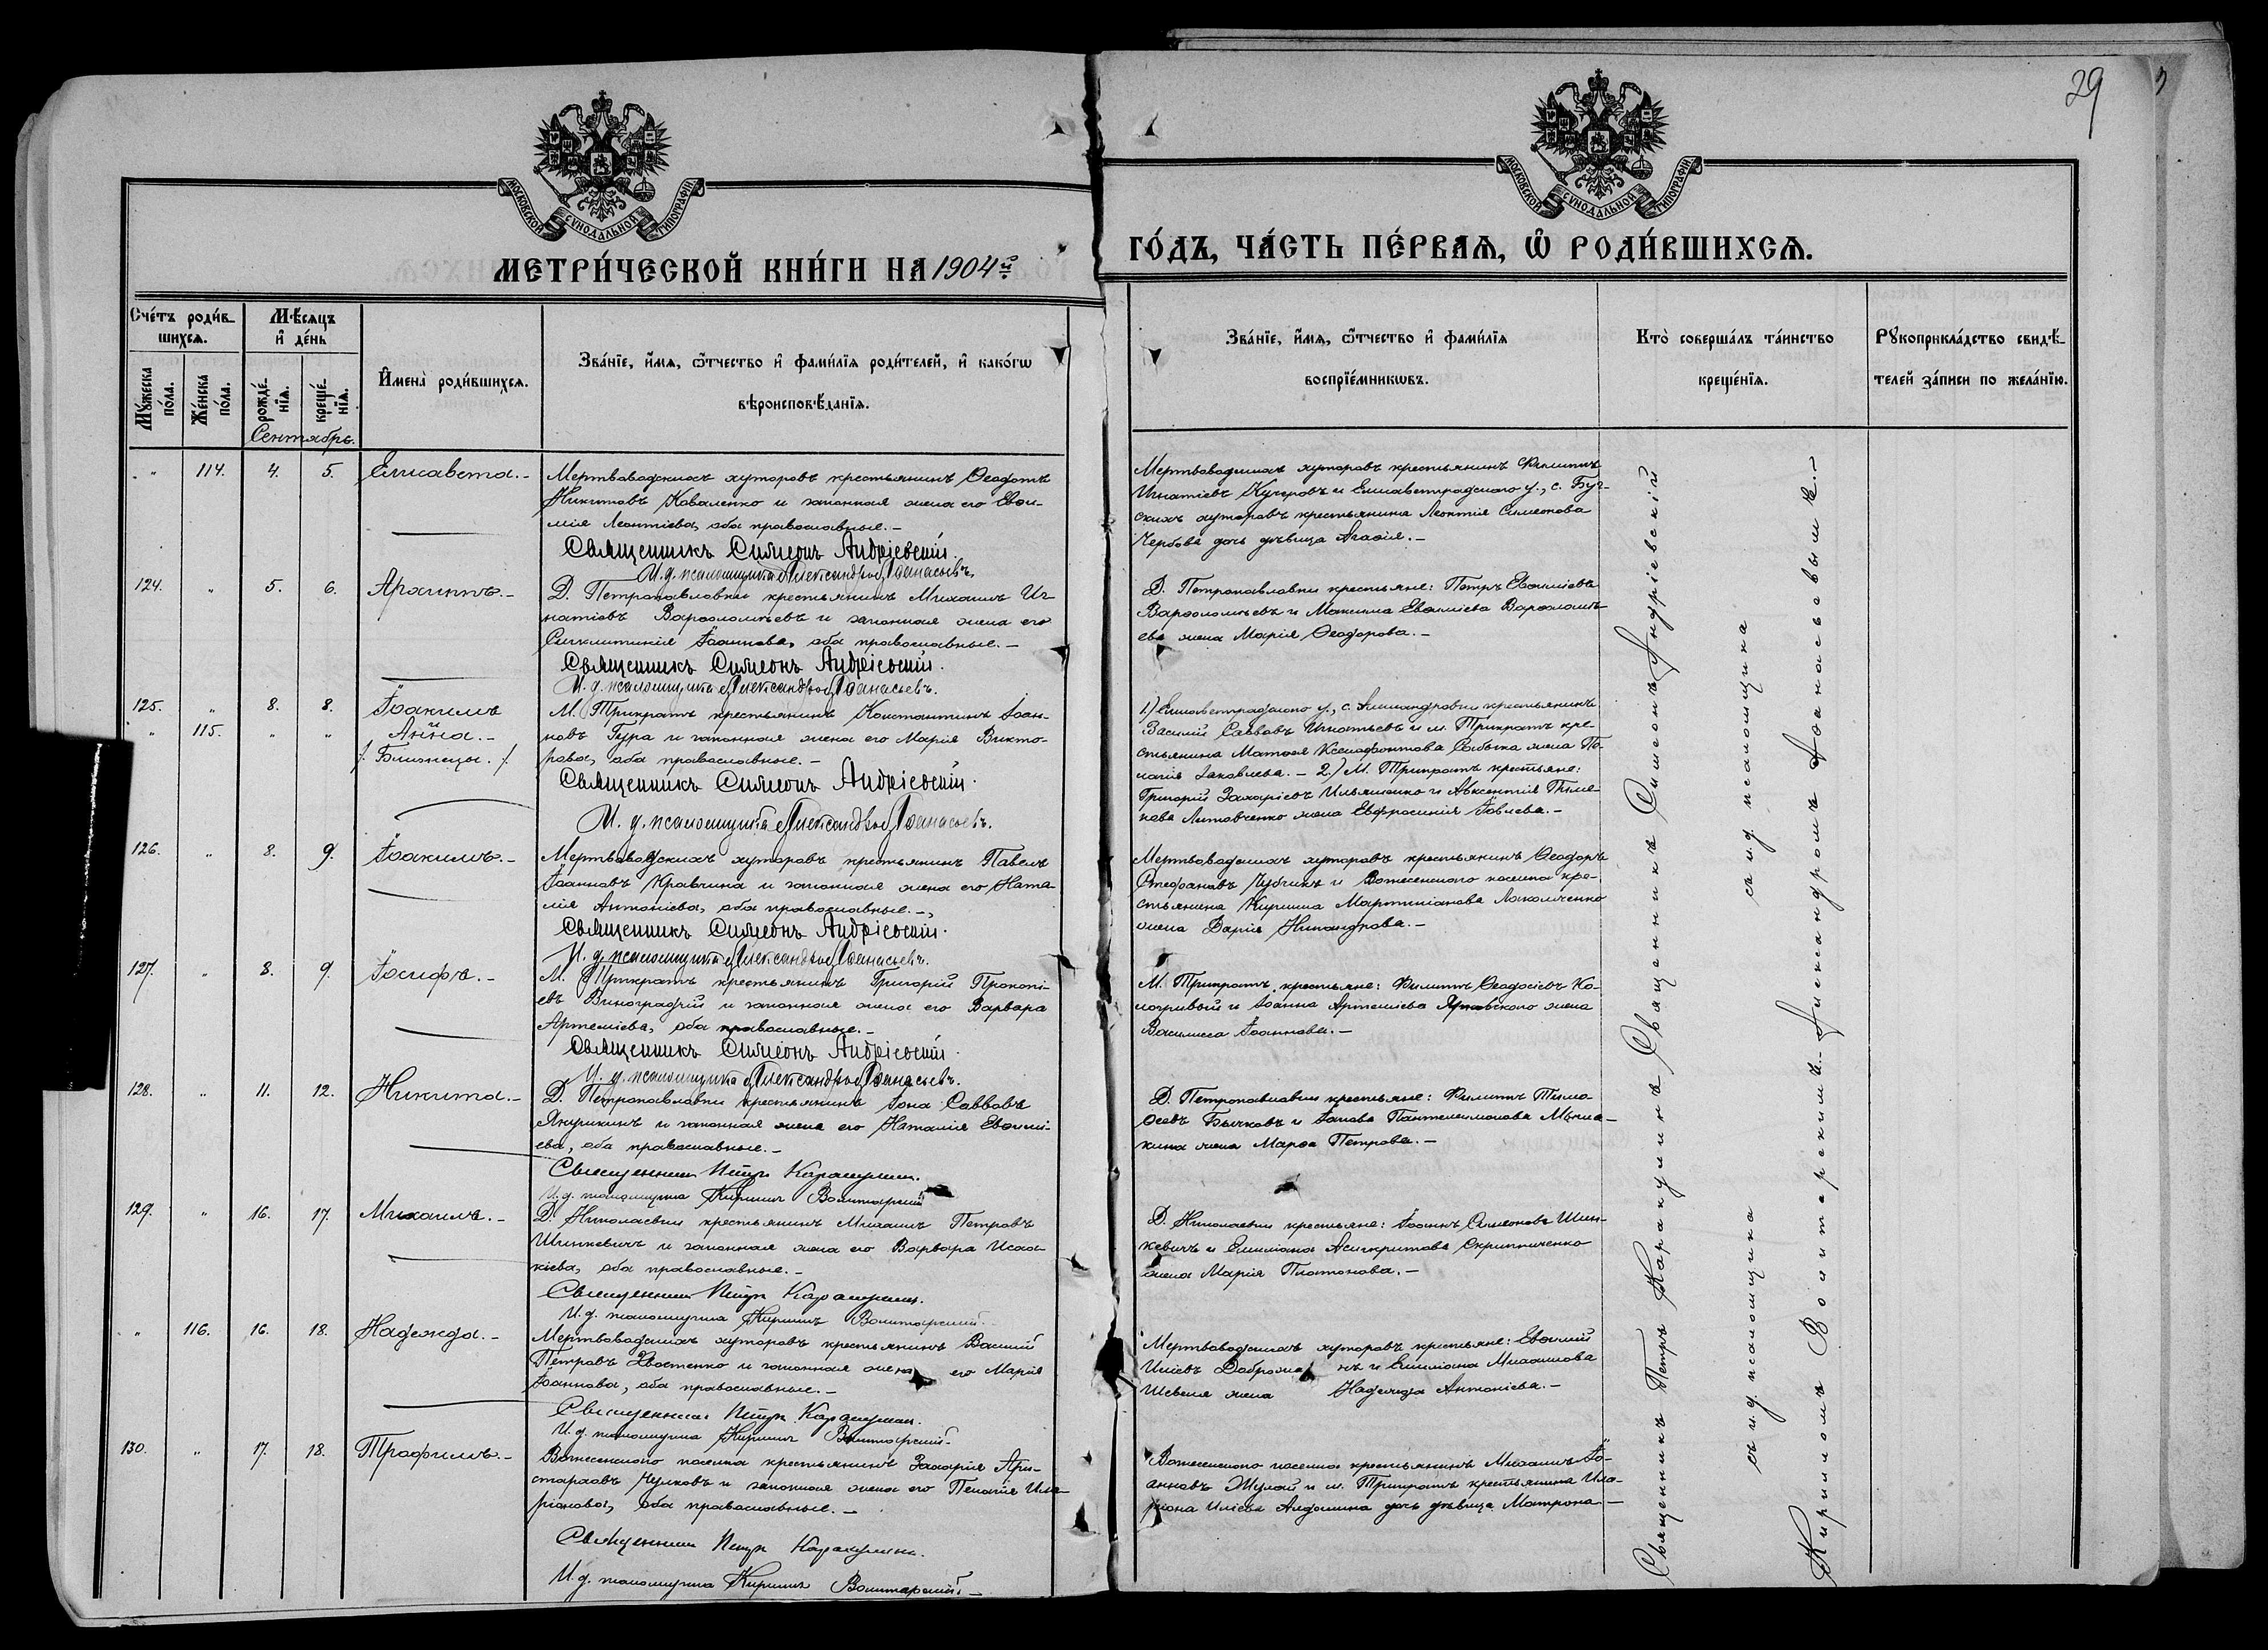 29
МОСКОВСКОЙ СѴНОДАЛЬНОЙ ТИПОГРАФІИ
МОСКОВСКОЙ СѴНОДАЛЬНОЙ ТИПОГРАФІИ
МЕТРИ́ЧЕСКОЙ КНИ́ГИ НА 1904й
ГО́ДЪ, ЧА́СТЬ ПЕ́РВАЯ, Ѡ РОДИ́ВШИХСЯ.
Сче́тъ роди́в-
шихся.
Мѣ́сяцъ
и҆ де́нь
Му́жеска
по́ла.
Же́нска
по́ла.
рожде́-
нїя.
креще́-
нїя.
И҆мена̀ роди́вшихся.
Зва́нїе, и҆́мя, ѻ҆́тчество и҆ фами́лїя роди́телей, и҆ како́гѡ
вѣроисповѣ́данїя.
Зва́нїе, и҆́мя, ѻ҆́тчество и҆ фами́лїя
воспрїе́мникѡвъ.
Кто̀ соверша́лъ та́инство
креще́нїя.
Рукоприкла́дство свидѣ́-
телей за́писи по жела́нїю.
Сентябрь.
" 114. 4. 5. Елисавета.-
Мертвоводскихъ хуторовъ крестьянинъ Ѳеодотъ
Никитовъ Коваленко и законная жена его Евѳи-
мія Леонтіева, оба православные.-
Священникъ Симеонъ Андріевскій.
И. д. псаломщика Александръ Аѳанасьевъ.
Мертвоводскихъ хуторовъ крестьянинъ Филиппъ
Игнатіевъ Кучеровъ и Елисаветградскаго у., с. Буг-
скихъ хуторовъ крестьянина Леонтія Симеонова
Чербова дочь дѣвица Агаѳія.-
124. " 5. 6. Архиппъ.-
Д. Петропавловки крестьянинъ Михаилъ Иг-
натіевъ Варѳоломѣевъ и законная жена его
Синклитикія Іоаннова, оба православные.-
Священникъ Симеонъ Андріевскій.
И. д. псаломщика Александръ Аѳанасьевъ.
Д. Петропавловки крестьяне: Петръ Евѳиміевъ
Варѳоломѣевъ и Максима Евѳиміева Варѳоломѣ-
ева жена Марія Ѳеодорова.-
125. " 8. 8. Іоакимъ
" 115. " " Анна.-
/. Близнецы. /.
М. Трикратъ крестьянинъ Константинъ Іоан-
новъ Гура и законная жена его Марія Викто-
рова, оба православные.-
Священникъ Симеонъ Андріевскій.
И. д. псаломщика Александръ Аѳанасьевъ.
1.) Елисаветградскаго у., с. Александровки крестьянинъ
Василій Саввовъ Игнатьевъ и м. Трикратъ кре-
стьянина Матѳея Ксенофонтова жена Пе-
лагія Іаковлева.- 2.) М. Трикратъ крестьяне:
Григорій Захаріевъ Ильяшенко и Авксентія Пиме-
нова Литовченко жена Евфросинія Іовлева.-
126. " 8. 9. Іоакимъ.-
Мертвоводскихъ хуторовъ крестьянинъ Павелъ
Іоанновъ Кравчина и законная жена его Ната-
лія Антоніева, оба православные.-
Священникъ Симеонъ Андріевскій.
И. д. псаломщика Александръ Аѳанасьевъ.
Мертвоводскихъ хуторовъ крестьянинъ Ѳеодоръ
Стефановъ Чубчикъ и Вознесенскаго поселка кре-
стьянина Кирилла Мартиніанова
жена Дарія Никандрова.-
127. " 8. 9. Іосифъ.-
М. Трикратъ крестьянинъ Григорій Прокопі-
евъ Виноградій и законная жена его Варвара
Артеміева, оба православные.-
Священникъ Симеонъ Андріевскій.
И. д. псаломщика Александръ Аѳанасьевъ.
М. Трикратъ крестьяне: Филиппъ Ѳеодосіевъ Ко-
логривый и Іоанна Артеміева жена
Василиса Іоаннова.-
128. " 11. 12. Никита.-
Д. Петропавловки крестьянинъ Іона Саввовъ
Янушкинъ и законная жена его Наталія Евѳимі-
ева, оба православные.-
Священникъ Петръ Каракулинъ.
И. д. псаломщика Кириллъ Волитарскій
Д. Петропавловки крестьяне: Филиппъ Тимо-
ѳеевъ Бычковъ и Іакова Пантелеимонова Мыша-
кина жена Марѳа Петрова.-
129. " 16. 17. Михаилъ.-
Д. Николаевки крестьянинъ Михаилъ Петровъ
Шинкевичъ и законная жена его Варвара Исаа-
кіева, оба православные.-
Священникъ Петръ Каракулинъ.
И. д. псаломщика Кириллъ Волитарскій.
Д. Николаевки крестьяне: Іоаннъ Симеоновъ Шин-
кевичъ и Емиліана Асигкритова Скрипниченко
жена Марія Платонова.-
" 116. 16. 18. Надежда.-
Мертвоводскихъ хуторовъ крестьянинъ Василій
Петровъ Хвостенко и законная жена его Марія
Іоаннова, оба православные.-
Священникъ Петръ Каракулинъ.
И. д. псаломщика Кириллъ Волитарскій.
Мертвоводскихъ хуторовъ крестьяне: Евѳимій
Иліевъ и Емиліана Михаилова
Шевеля жена Надежда Антоніева.-
130. " 17. 18. Трофимъ.-
Вознесенскаго поселка крестьянинъ Захарія Ари-
старховъ Чулковъ и законная жена его Пелагія Ила-
ріонова, оба православные.-
Священникъ Петръ Каракулинъ.
И. д. псаломщика Кириллъ Волитарскій.-
Вознесенскаго поселка крестьянинъ Михаилъ Іо-
анновъ Жулай и м. Трикратъ крестьянина Ила-
ріона Иліева Алдошина дочь дѣвица Матрона.-
Священникъ Петръ Каракулинъ Священникъ Симеонъ Андріевскій
съ и. д. псаломщика са и. д. псаломщика
Кирилломъ Волитарскимъ. Александромъ Аѳанасьевымъ.-